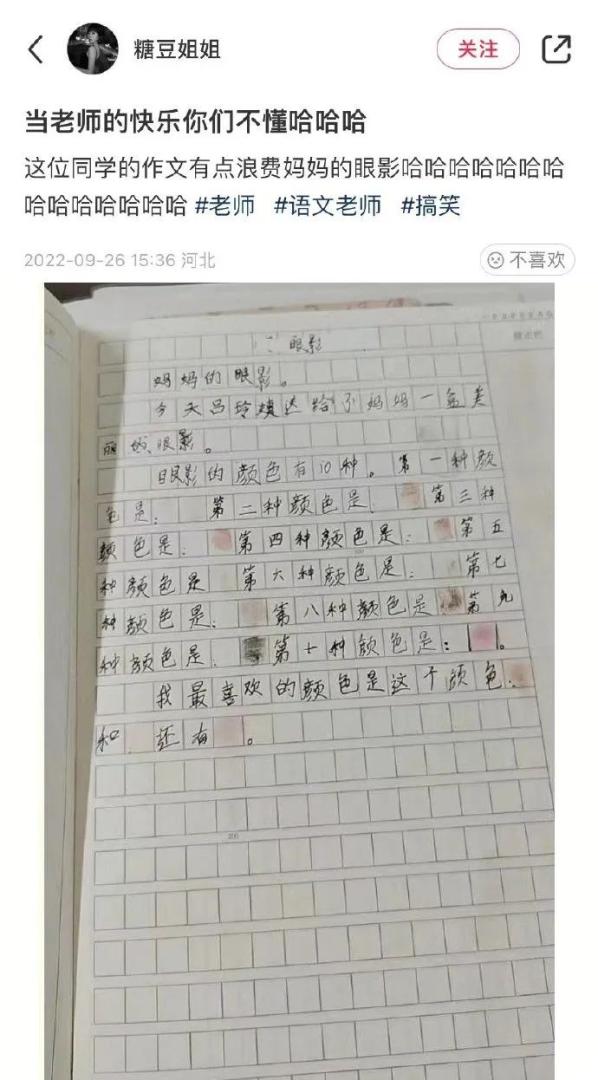 糖豆姐姐
关注
当老师的快乐你们不懂哈哈哈
这位同学的作文有点浪费妈妈的眼影哈哈哈哈哈哈哈
哈哈哈哈哈哈哈 #老师 #语文老师 #搞笑
2022-09-26 15:36 河北
不喜欢
眼影
妈妈的眼影。
今天吕玲 送给了妈妈一盒美
丽的眼影。
眼影的颜色有10种。第一种颜
色是: 第二种颜色是: 第三种
颜色是: 第四种颜色是: 第五
种颜色是 第六种颜色是: 第七
种颜色是: 第八种颜色是 第九
种颜色是: 第十种颜色是: 。
我最喜欢的颜色是这个颜色:
和 还有 。
200